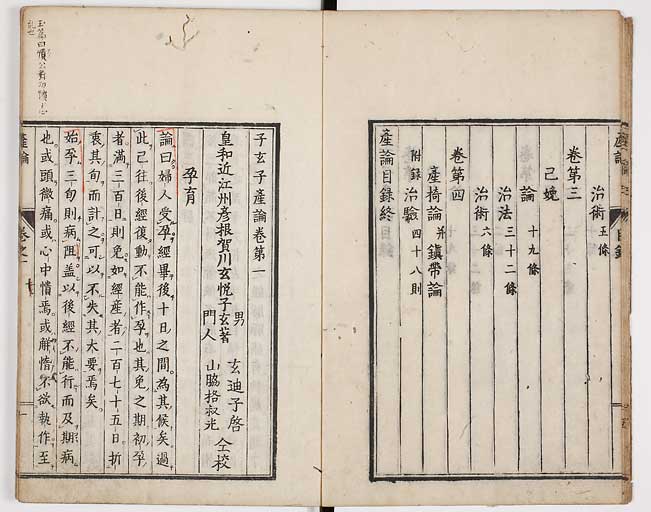 産論
目録
治術 五條
卷第三
已娩
論 十九條
治法 三十二條
治術 六條
卷第四
産椅論 并 鎮帶論
附録 治驗 四十八則
産論目録終
子玄子産論卷第一
皇和近江州彦根賀川玄悦子玄著
男 玄迪子啓
門人 山脇格叔光 仝校
孕育
論曰婦人受孕經畢後十日之間為其候矣過
此已往後經復動不能作孕也其免之期初孕
者滿三百日則免如經産者二百七十五日折
衷其旬而計之可以不失其大要焉矣
始孕三旬則病阻蓋以後經不能行而及期病
也或頭微痛或心中憒焉或觧惰不欲執作至
産論
卷之一